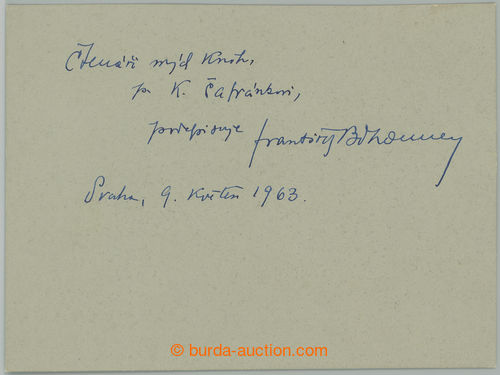 Čtenáři mých knih,
p. K. Čafránkovi,
podepisuje František Běhounek
Praha, 9. květen 1963.
© burda-auction.com